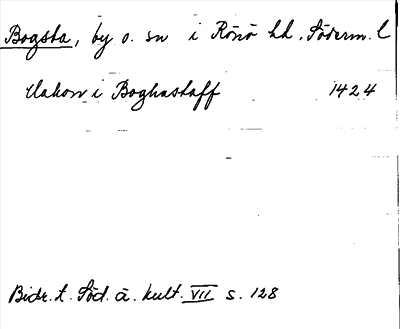 Bogsta, by o. sn i Rönö hd. Söderm. l
Hakon i Boghastaff 1424
Bidr. t. Söd. ä. kult. VII s. 128